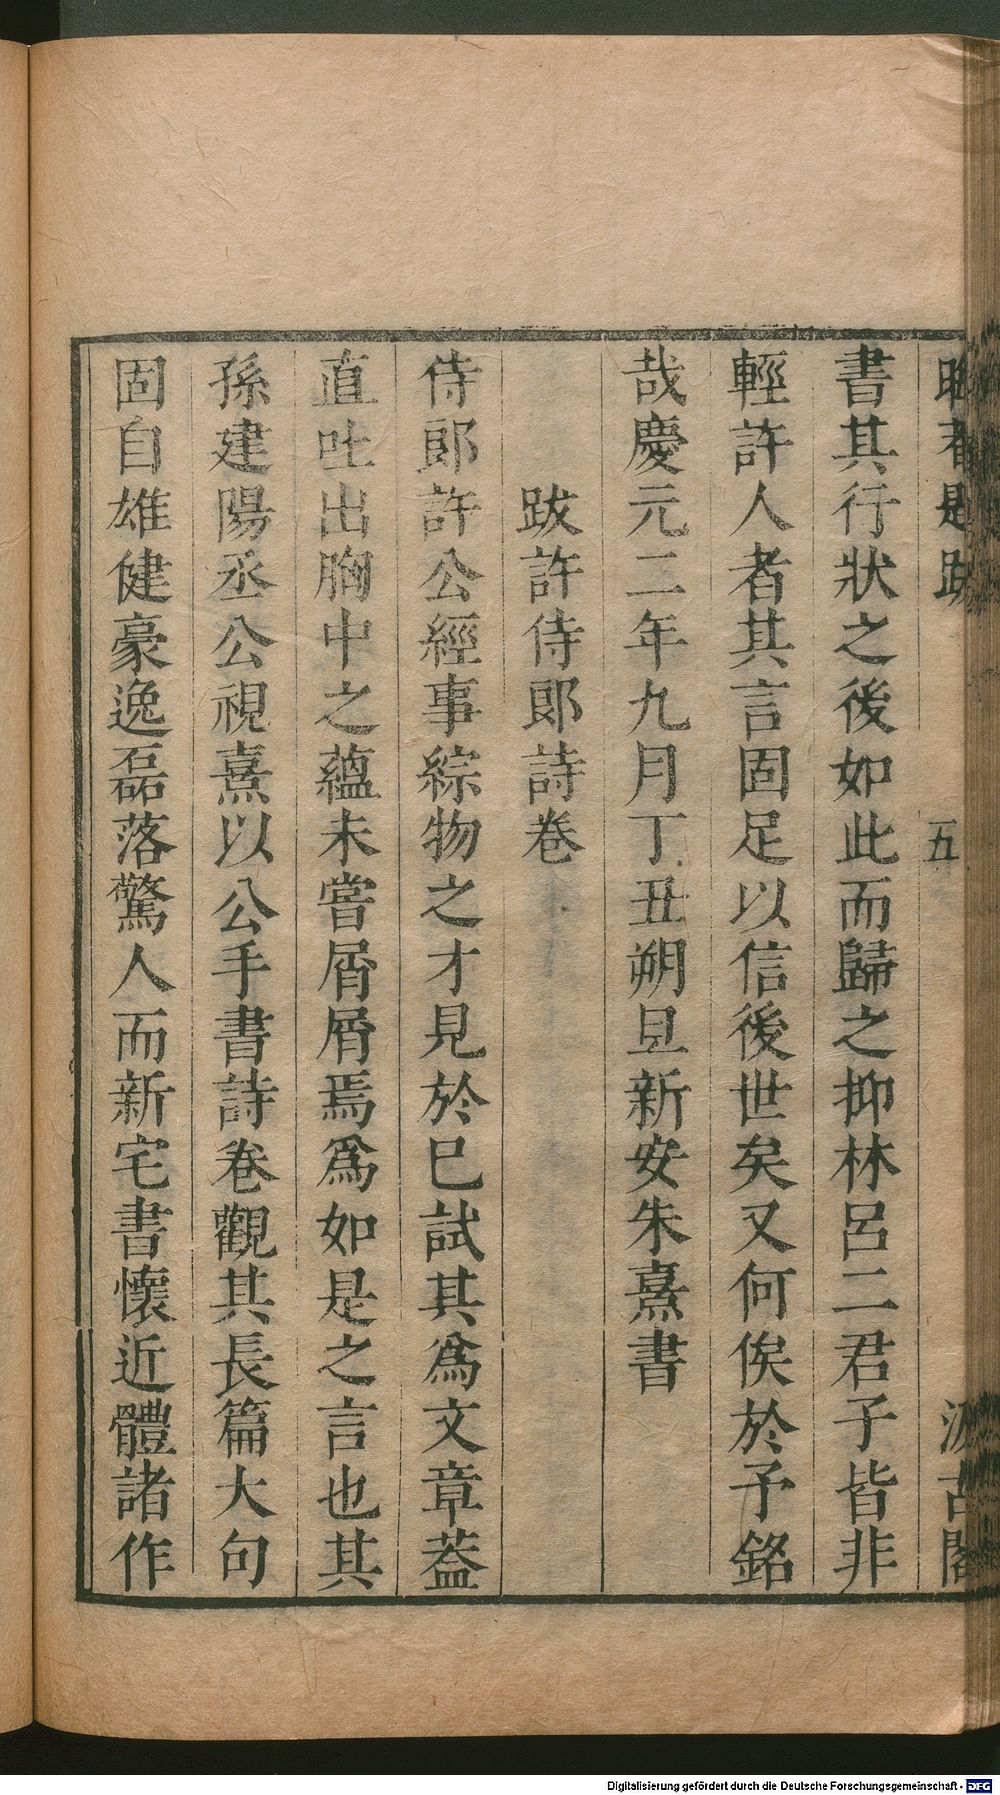 晦菴題跋 五 汲古閣
書其行狀之後如此而歸之抑林呂二君子皆非
輕許人者其言固足以信後世矣又何俟於予銘
哉慶元二年九月丁丑朔旦新安朱熹書
跋許侍郎詩卷
侍郎許公經事綜物之才見於巳試其爲文章葢
直吐出胸中之蘊未嘗屑屑焉爲如是之言也其
孫建陽丞公視熹以公手書詩卷觀其長篇大句
固自雄健豪逸磊落驚人而新宅書懷近體諸作
Digitalisierung gefördert durch die Deutsche Forschungsgemeinschaft - DFG